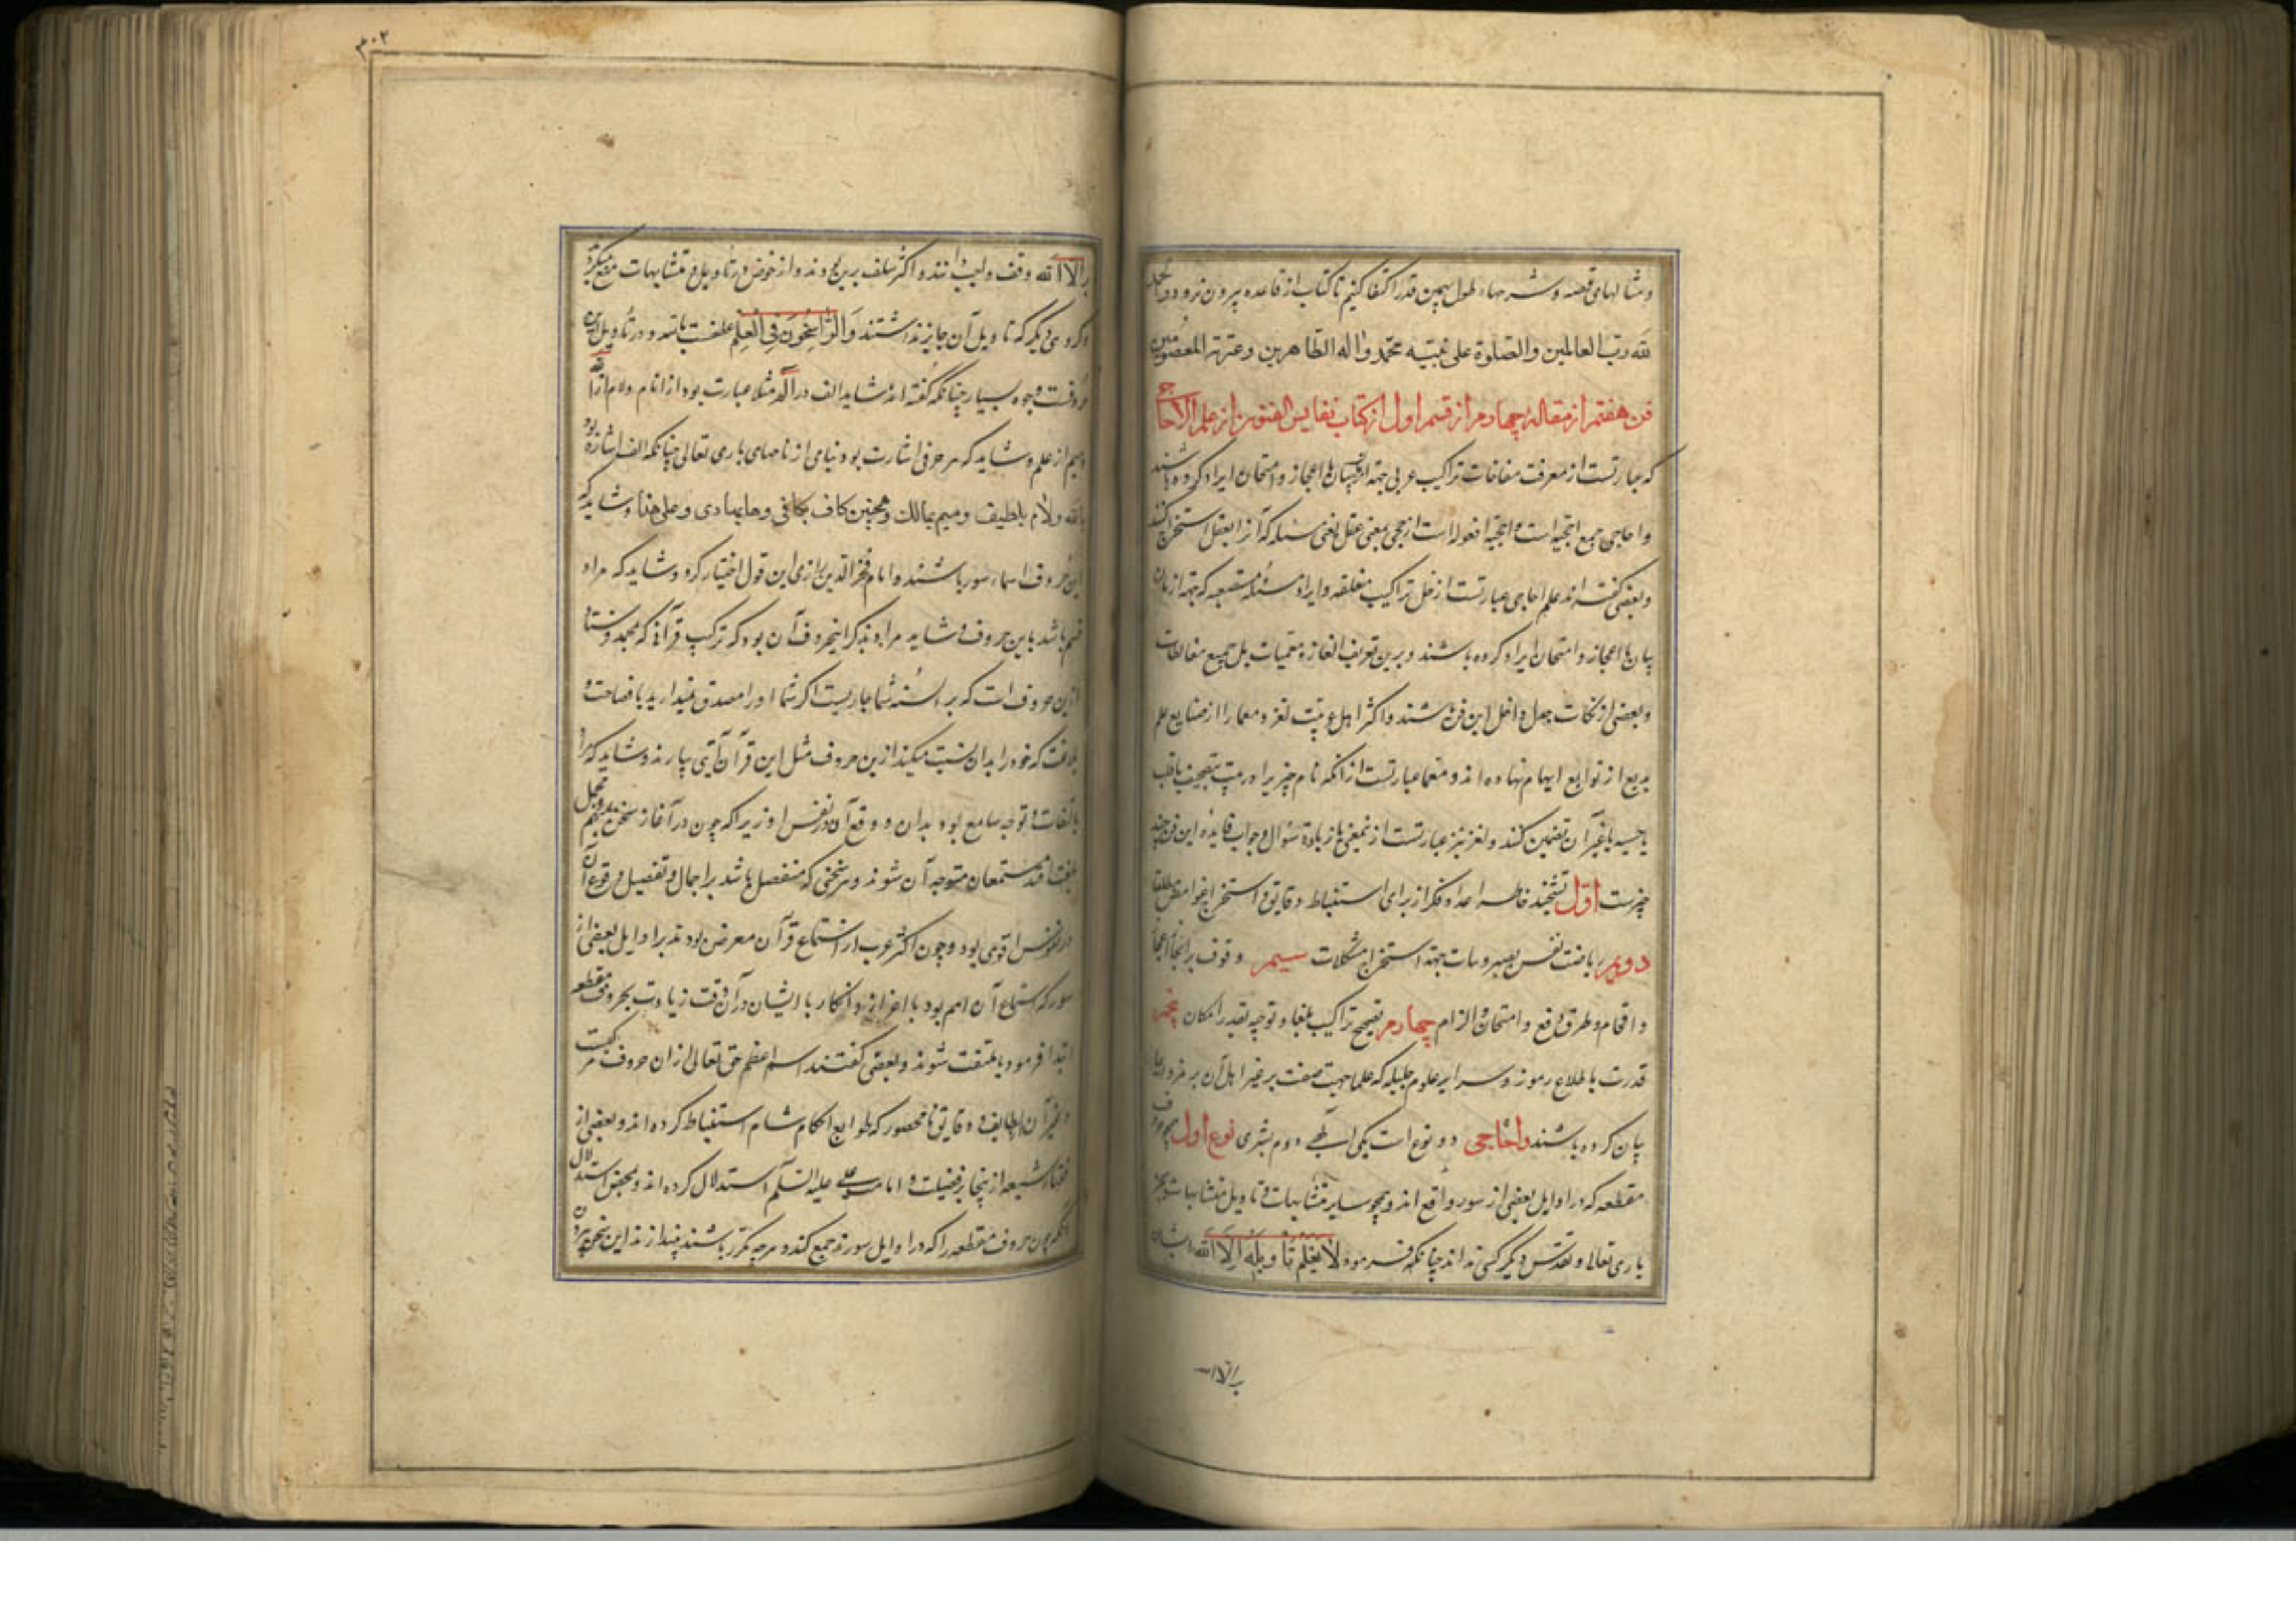 و مثالهای قصه و شرحها، طول بهمین قدر اکتفا کنیم تا کتاب از قاعده بیرون نرود والحمد
لله رب العالمین والصلوة علی نبیه محمد واله الطاهرین وعترته المعصومین
فن هفتم از مقاله چهارم از قسم اول از کتاب نفایس الفنون از علم الاحاجی
که عبارتست از معرفت مغالطات تراکیب عربی جهة اعجاز و امتحان ایراد کرده باشند
و احاجی جمع احجیه است و احجیه افعوله است از حجی بمعنی عقل یعنی مسئله که آنرا بعقل استخراج کنند
و بعضی گفته اند علم احاجی عبارتست از حل تراکیب مغلقه و ایراد مسئله مستصعبه که جهة
اعجاز و امتحان ایراد کرده باشند و برین تعریف الغاز و معمیات بل جمیع مغالطات
و بعضی از نکات جدل داخل این فن باشند و اکثر اهل عربیت لغز و معما را از صنایع علم
بدیع از توابع ایهام نهاده اند و معما عبارتست از آنکه نام چیزیرا در بیت بتصحیف یا قلب
یا غیر آن تضمین کنند و لغز نیز عبارتست از نمعنی با زیادة سؤال و جواب فایده این فن چند
چیزست اول تشحیذ خاطر و اعداد فکر از برای استنباط دقایق و استخراج غوامض
دویم ریاضت نفس بصبر و ثبات جهة استخراج مشکلات سیم وقوف بر
و افحام و طرق دفع و امتحان و الزام چهارم تصحیح تراکیب بلغا و توجیه بقدر امکان پنجم
قدرت باطلاع رموز و سرایر علوم جلیله که علما جهت صفت بر غیر اهل آن بر رمز و ایما
بیان کرده باشند و احاجی دو نوع است یکی الهی دوم بشری نوع اول حروف
مقطعه که در اوایل بعضی از سور واقع اند و همچو سایر متشابهات و تاویل متشابهات بجز
باری تعالی و تقدس دیگر کسی نداند چنانکه فرمود لا یعلم تأویله الا الله ایشان
بر الا الله
۳۰۲
بر الا الله وقف واجب دانند و اکثر سلف برین بودند و از خوض در تأویل متشابهات منع میکردند
و گروهی دیگر که تاویل آن جایز نداشتند والراسخون فی العلم عطفست باشد و در تأویل این
حروفست وجوه بسیار چنانکه گفته اند شاید الف در الم مثلا عبارت بود از انام و لام از الله
و میم از علم و شاید که هر حرفی اشارت بود بنامی از نامهای باری تعالی چنانکه الف اشارة بود
بالله و لام بلطیف و میم بمالک و همچنین کاف بکافی و ها بهادی و علی هذا و شاید که
این حروف اسماء سور باشند و امام فخر الدین رازی این قول اختیار کرد و شاید که مراد
قسم باشد باین حروف و شاید مراد بذکر اینحروف آن بود که ترکیب قرآن که محمد فرستاد
ازین حروف است که بر السنه شما جاریست اگر شما او را مصدق نمیدارید با فصاحت و
بلاغت که خود را بدان نسبت میکنید ازین حروف مثل این قرآن آیتی بیارند و شاید که مراد
التفات و توجه سامع بود بدان و وقع آن در نفس او زیرا که چون در آغاز سخن مبهم و مجمل
مستمعان متوجه آن شوند و هر سخنی که منفصل باشد بر اجمال و تفصیل وقوع آن
در نفس اقوی بود و چون اکثر عرب از استماع قرآن معرض بودند بر اوایل بعضی از
سور که استماع آن اهم بود با اعراض و انکار با ایشان در آن وقت زیادت بحروف مقطعه
ابتدا فرمود تا ملتفت شوند و بعضی گفتند اسم اعظم حق تعالی ازان حروف مرکبست
و غیر آن لطایف و دقایق نامحصور که طوایع احکام شام استنباط کرده اند و بعضی از
فقهاء شیعه از ینجا بر فضیلت و امامت علی علیه السلم استدلال کرده اند و محض استدلال
آنکه چون حروف مقطعه را که در اوایل سورند جمع کند و هرچه مکرر باشند بیندازند این سخن بیرون